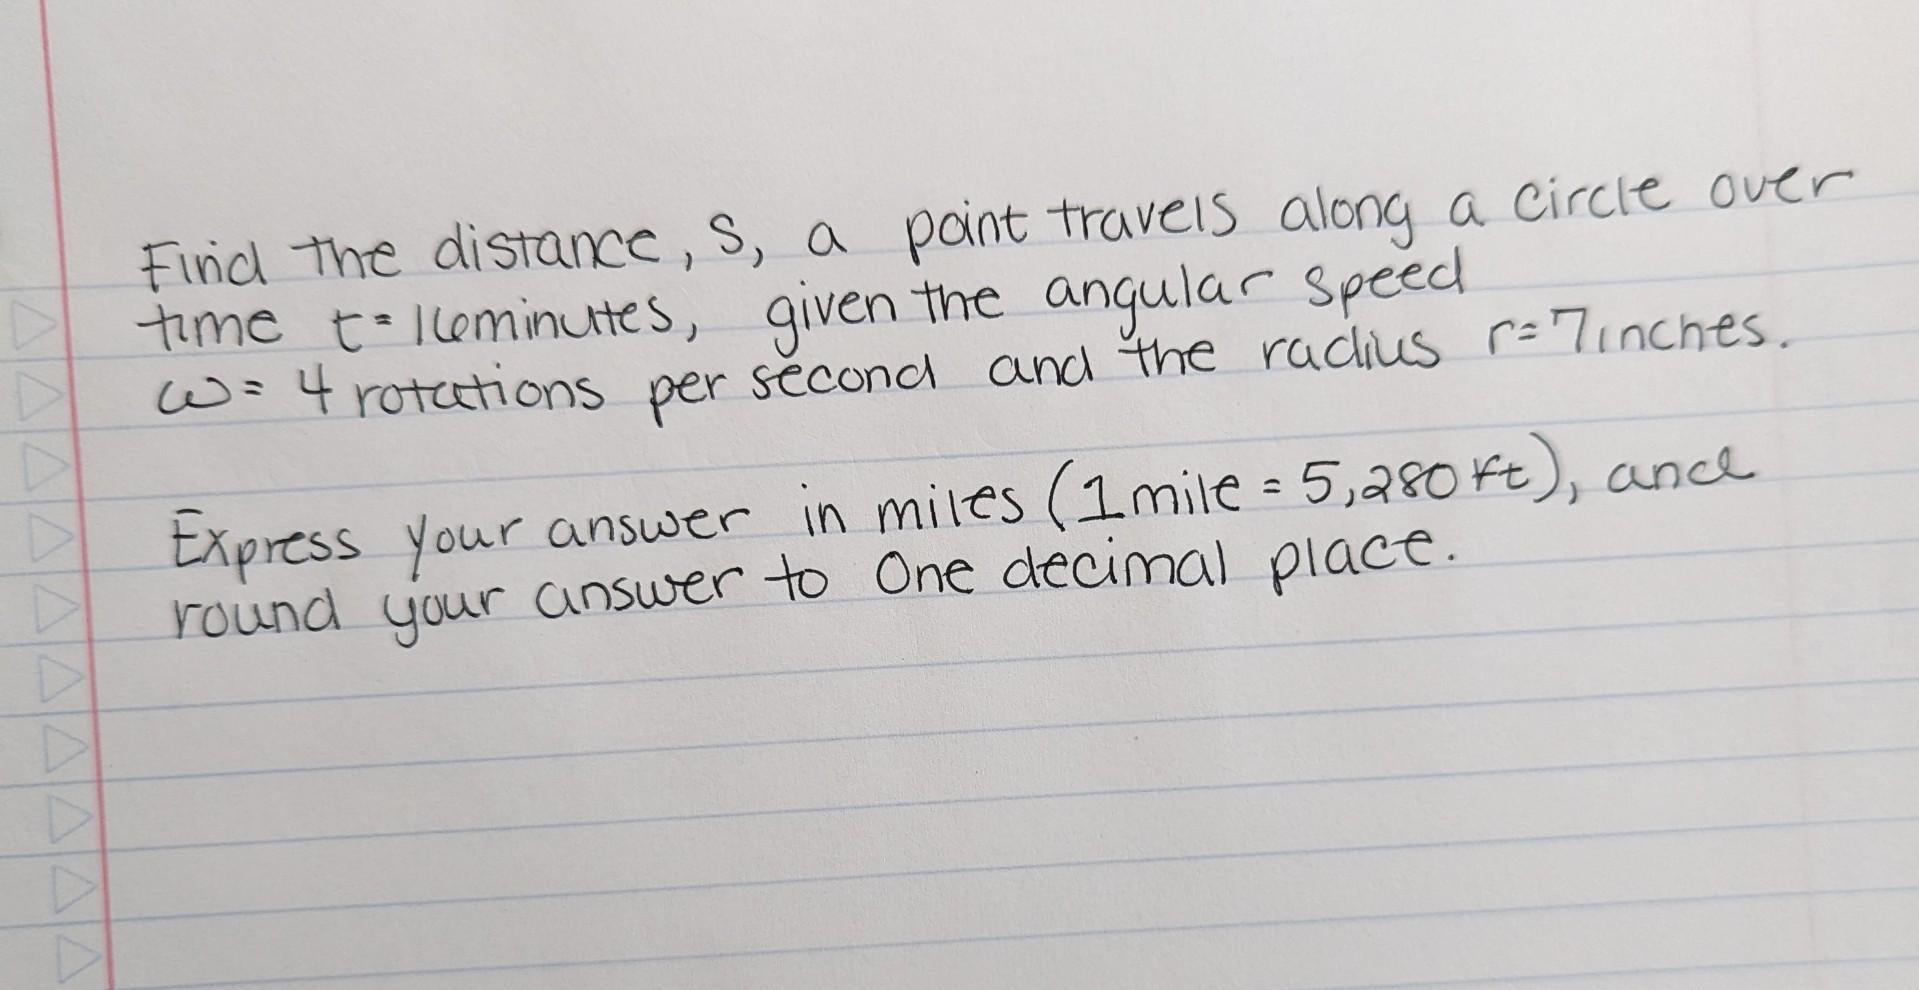 Find the distance, S, a point travels along a circle over
time t=16minutes, given the angular speed
ω= 4 rotations per second and the radius r=7inches.
Express your answer in miles (1mile=5,280ft), and
round your answer to One decimal place.